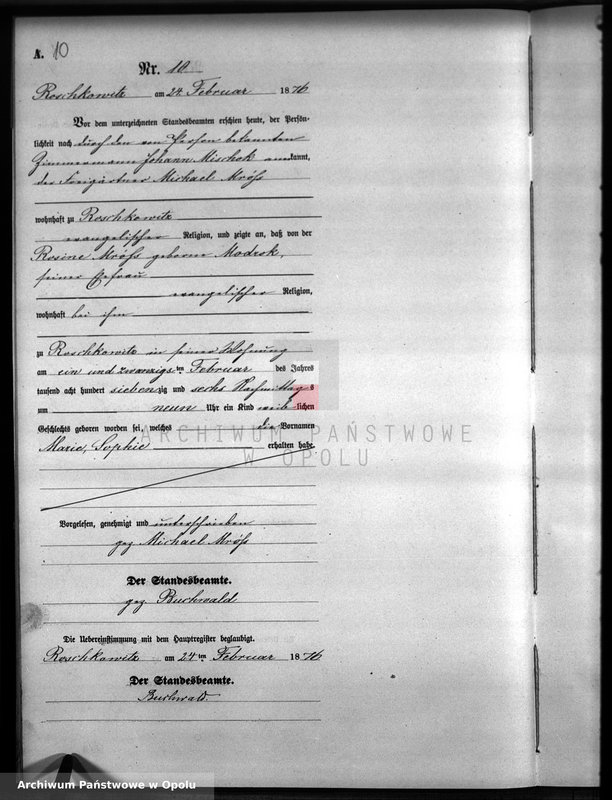 A. 10
Nr. 10
Roschkowitz am 24 Februar 1876
Vor dem unterzeichneten Standesbeamten erschien heute, der Persön-
lichkeit nach durch den von Person bekannten
Zimmermann Johann Mischok anerkannt,
der Freigärtner Michael Mröß
wohnhaft zu Roschkowitz
evangelischer Religion, und zeigte an, daß von der
Rosine Mröß geborne Modzok,
seiner Ehefrau
evangelischer Religion,
wohnhaft bei ihm
zu Roschkowitz in seiner Wohnung
am ein und zwanzigsten Februar des Jahres
tausend acht hundert siebenzig und sechs Nachmittags
um neun Uhr ein Kind weiblichen
Geschlechts geboren worden sei, welches die Vornamen
Marie, Sophie erhalten habe.
Vorgelesen, genehmigt und unterschrieben
gez Michael Mröß
Der Standesbeamte.
gez Buchwald
Die Uebereinstimmung mit dem Hauptregister beglaubigt.
Roschkowitz am 24ten Februar 1876
Der Standesbeamte.
Buchwald.
ARCHIWUM PAŃSTWOWE
W OPOLU
Archiwum Państwowe w Opolu